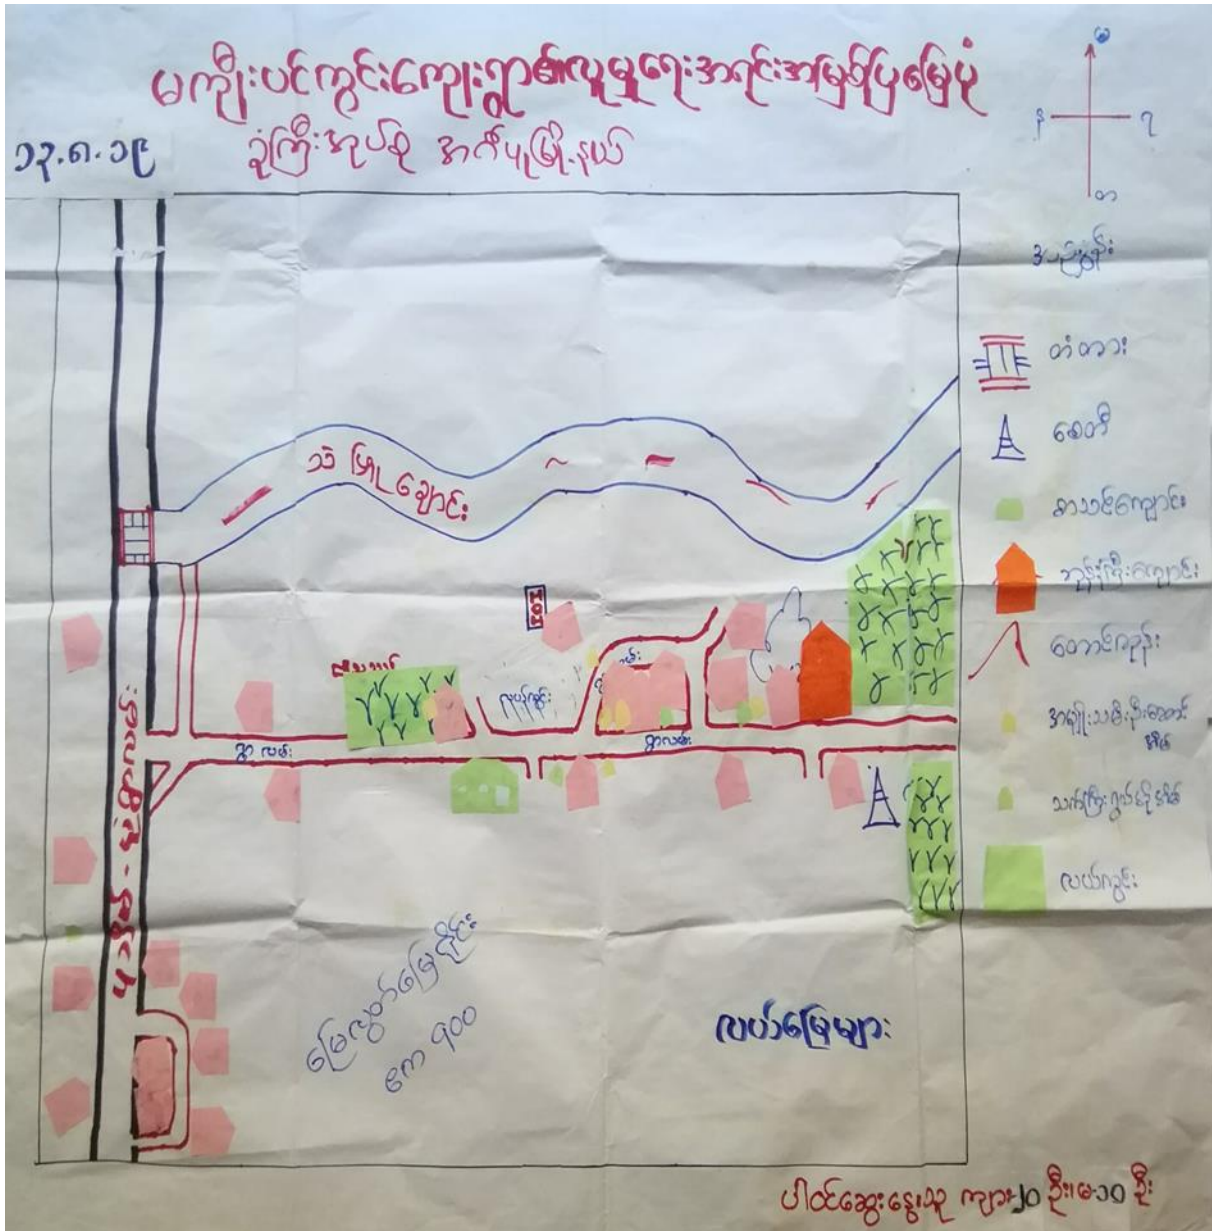 မကျီးပင်ကွင်းကျေးရွာ၏လူမှုရေးအရင်းအမြစ်ပြမြေပုံ
၁၃.၈.၁၉
ခုံကြီးအုပ်စု အင်္ဂပူမြို့နယ်
မ
န
ဋ
တ
တံတား
စေတီ
စာသင်ကျောင်း
ဘုန်းကြီးကျောင်း
တောင်ကုန်း
အမျိုးသမီးဦးဆောင်
အိမ်
သက်ကြီးရွယ်အိုအိမ်
လယ်ကွင်း
သဲဖြူချောင်း
ရွာလမ်း
ရွာလမ်း
မြေလွတ်မြေရိုင်း
ဧက ၅၀၀
လယ်မြေများ
ပါဝင်ဆွေးနွေးသူ ကျား-၂၀ ဦး၊ မ-၁၀ ဦး